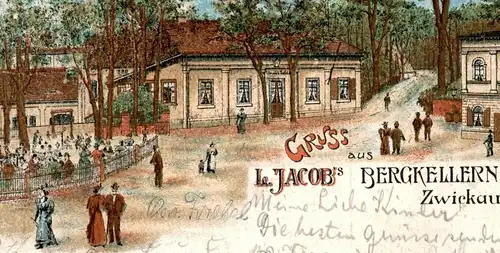 Gruss
aus
L. JACOB's BERGKELLERN
Zwickau
Meine liebe Kinder
Die besten Grüsse senden